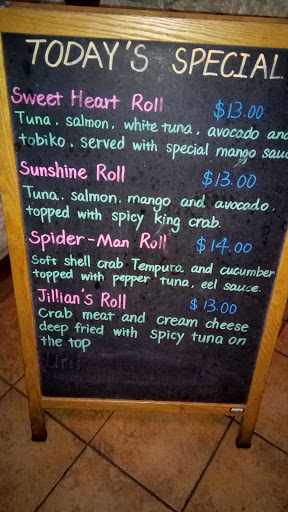 TODAY'S SPECIAL
Sweet Heart Roll $13.00
Tuna, salmon, white tuna, avocado and
tobiko, served with special mango sauc
Sunshine Roll $13.00
Tuna, salmon, mango and avocado,
topped with spicy king crab.
Spider-Man Roll $14.00
Soft shell crab Tempura and cucumber
topped with pepper tuna, eel sauce.
Jillian's Roll $13.00
Crab meat and cream cheese
deep fried with spicy tuna on
the top